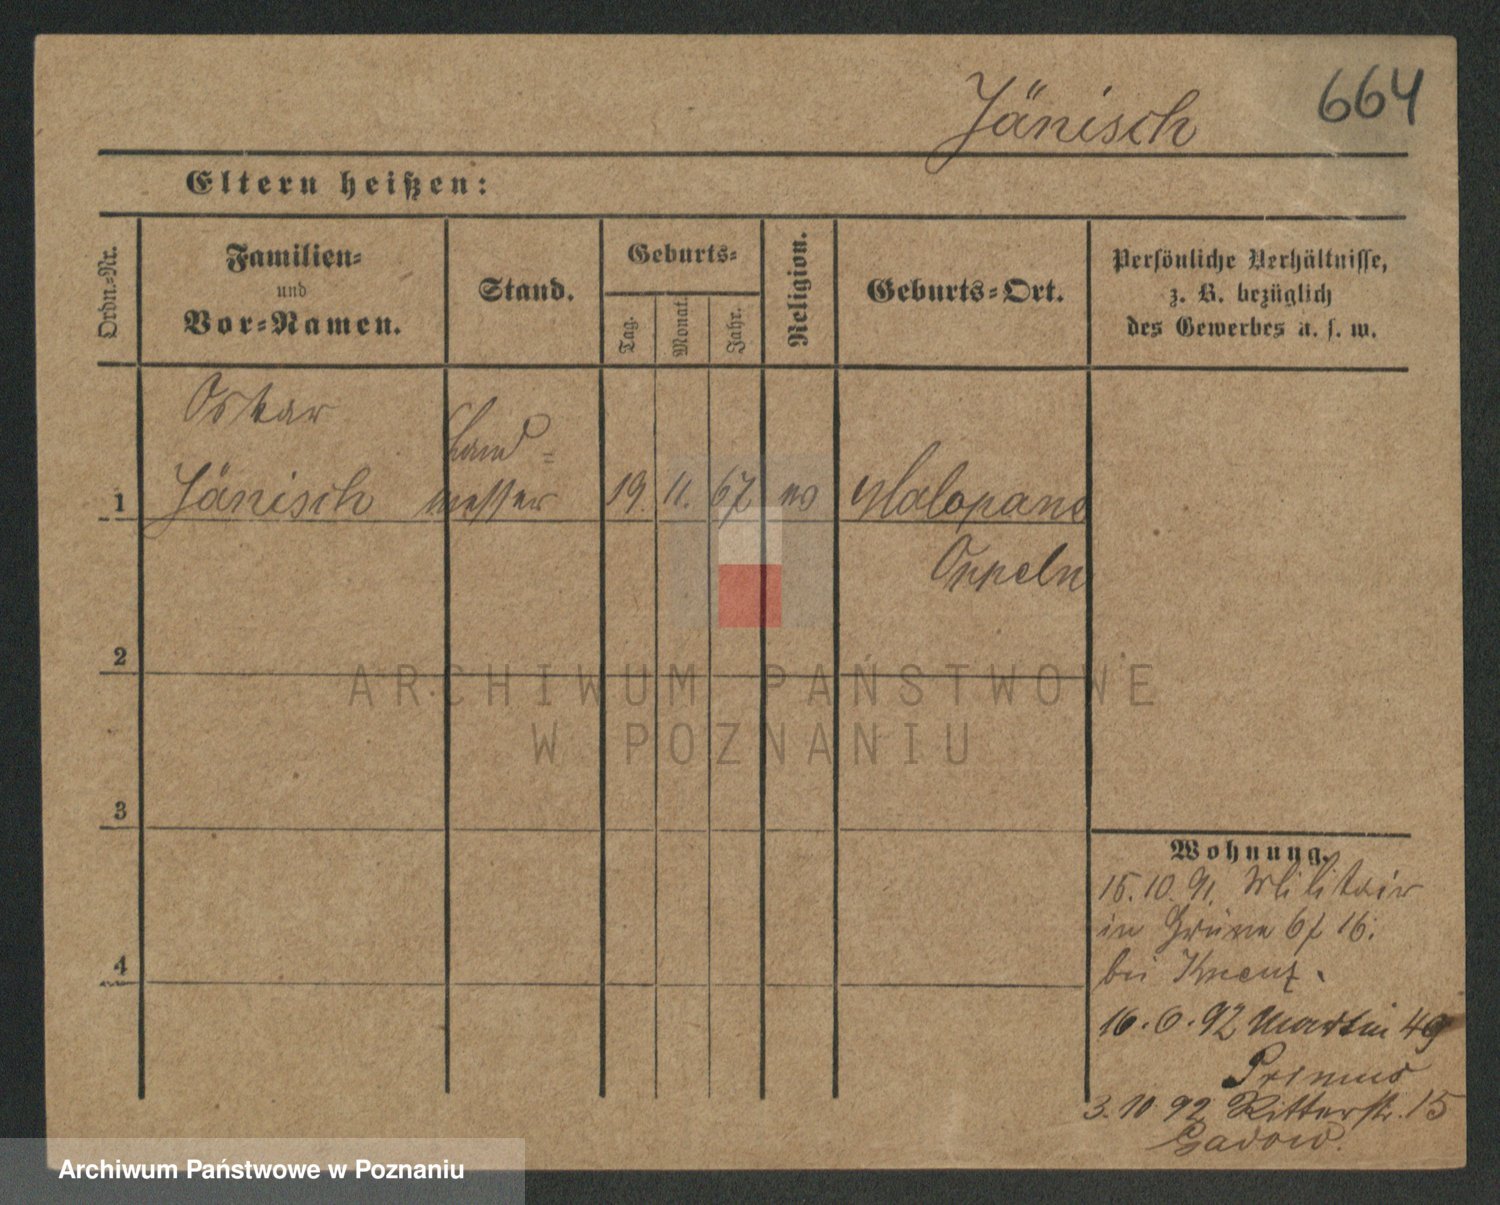 664
Jänisch
Eltern heißen:
Ordn.-Nr.
Familien-
und
Vor-Namen.
Stand.
Geburts-
Tag.
Monat.
Jahr.
Religion.
Geburts-Ort.
Persönliche Verhältnisse,
z. B. bezüglich
des Gewerbes u. s. w.
Oskar
Land=
1 Jänisch messer 19. 11. 67 ev Malapane
Oppeln
2
3
4
Wohnung.
15.10.91. Militair
in 16.
bei
16.6.92 Martin 49
Primus
3.10.92 Ritterstr. 15
Gadow.
ARCHIWUM PAŃSTWOWE
W POZNANIU
Archiwum Państwowe w Poznaniu